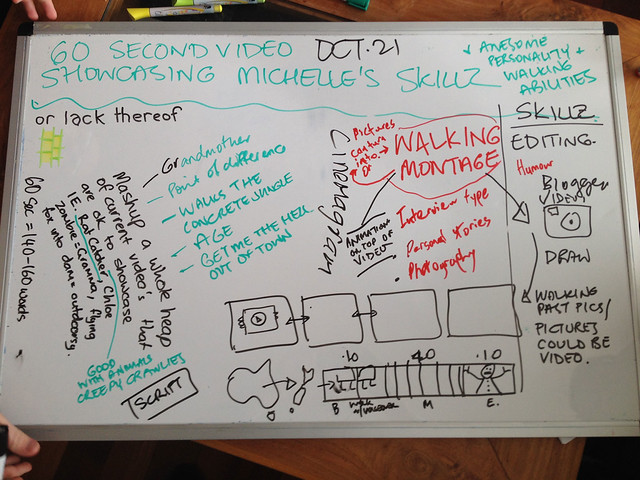 60 SECOND VIDEO OCT. 21
SHOWCASING MICHELLE'S SKILLZ
+ AWESOME
PERSONALITY +
WALKING
ABILITIES
or lack thereof
Grandmother
Point of difference
WALKS THE
CONCRETE JUNGLE
AGE
GET ME THE HELL
OUT OF TOWN
Mashup a whole heap
of current video's that
are ok to showcase
IE. Rat Catcher, Chloe
Zombie = Gramma, flying
fox into dam = outdoorsy.
60 Sec = 140-160 words
GOOD
WITH ANIMALS
CREEPY CRAWLIES
SCRIPT
Cinemagram
Pictures
conture
into
OF
WALKING
MONTAGE
ANIMATION
ON TOP OF
VIDEO
Interview type
Personal stories
Photography
SKILLZ
EDITING.
Humour
Blogger
VIDEOS
DRAW
WALKING
PAST PICS/
PICTURES
COULD BE
VIDEO.
.10 40 .10
B WALK M E.